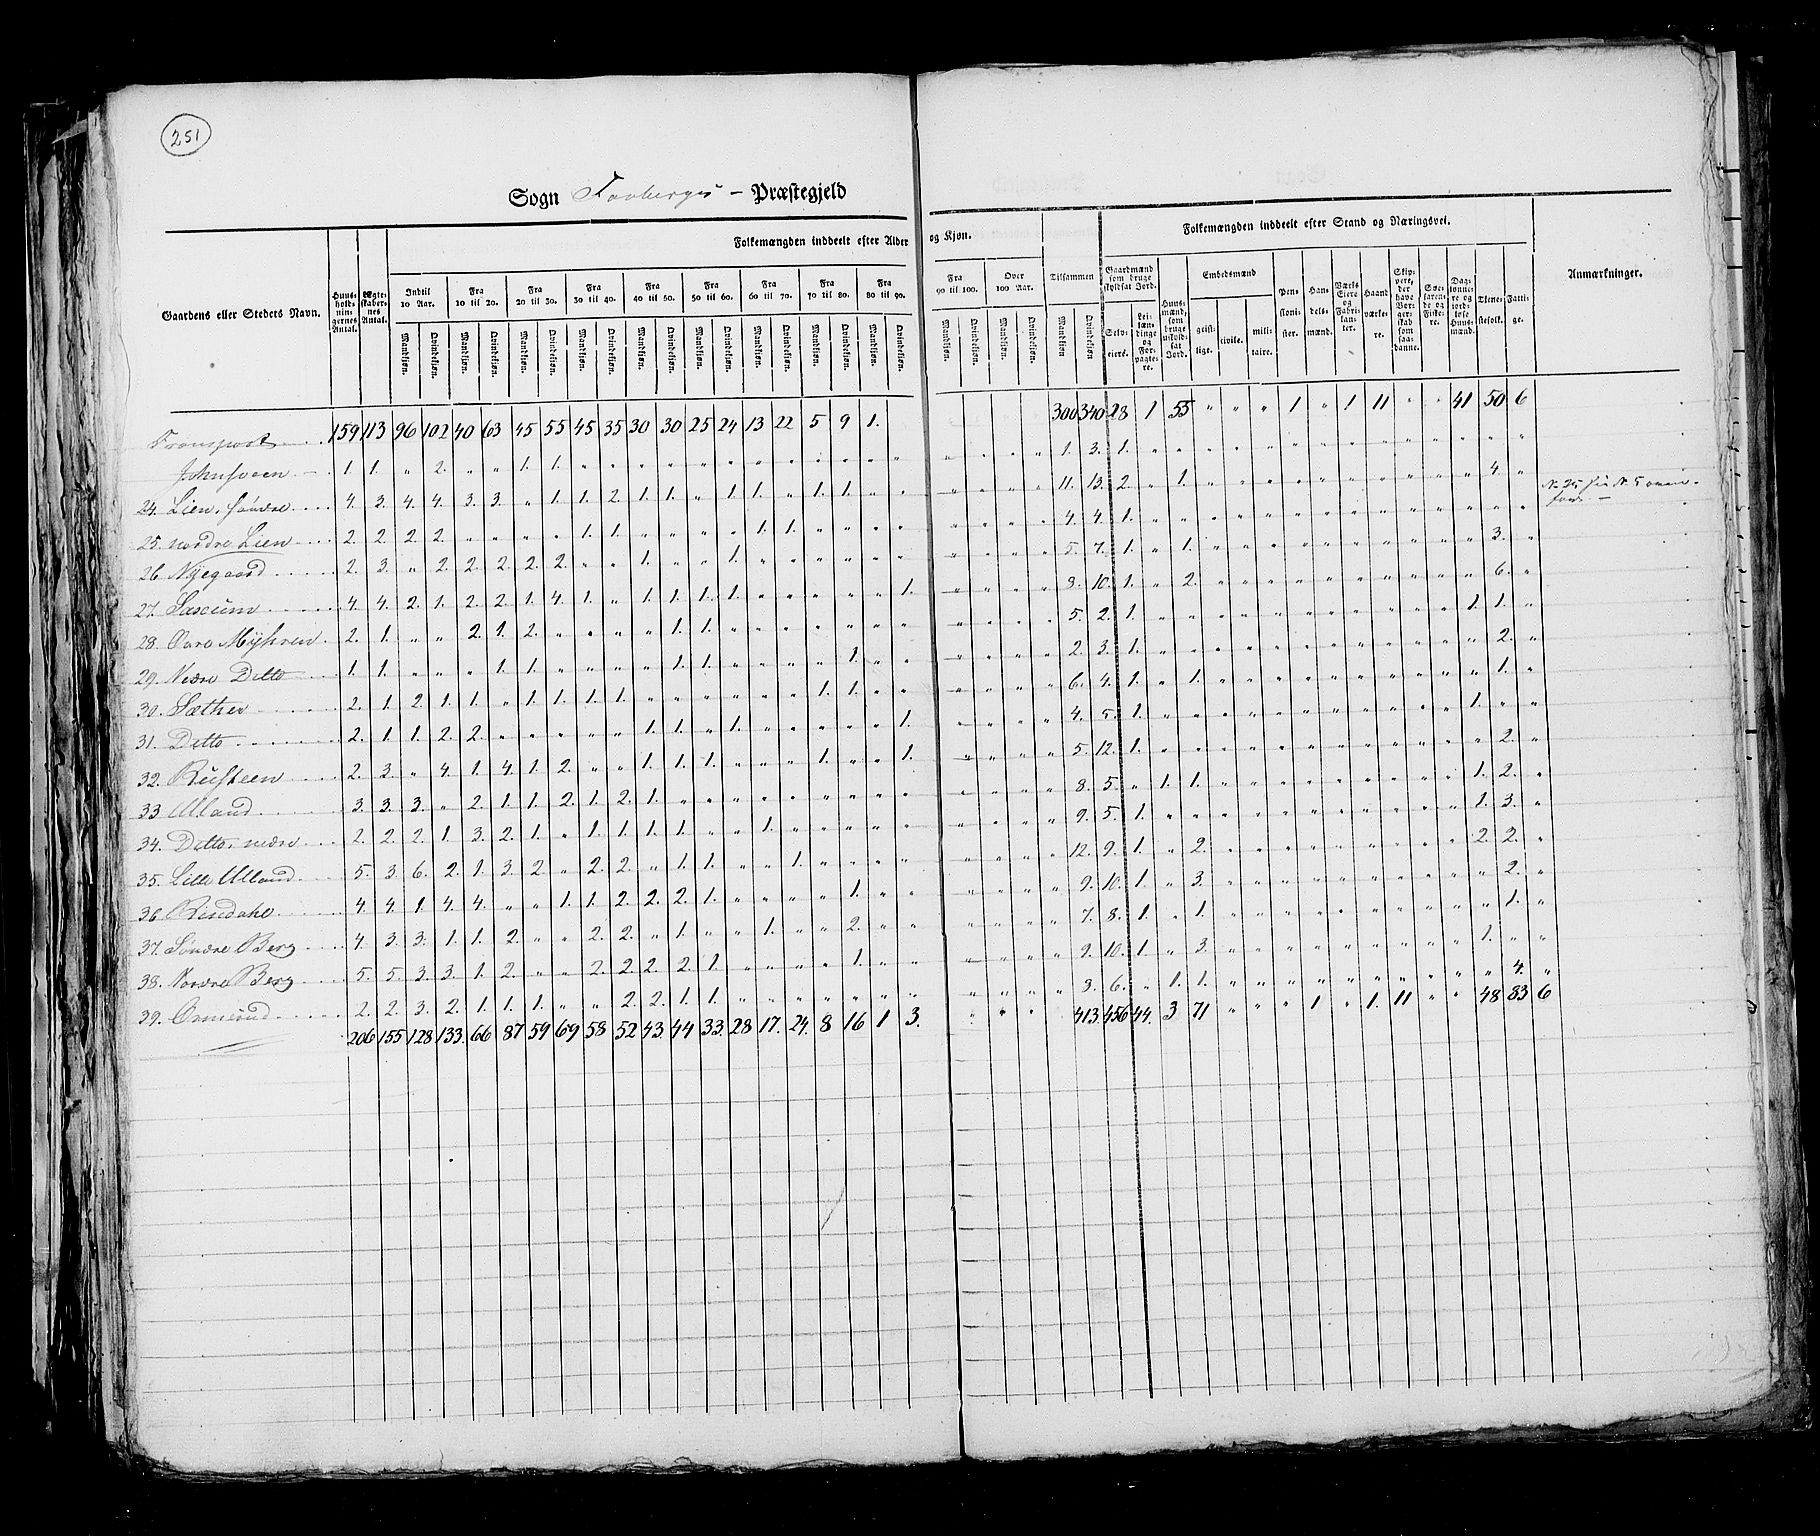 251
Sogn Faabergs - Præstegjeld
Gaardens eller Stedets Navn. Huusholdningernes Antal. Ægteskabernes Antal. Folkemængden inddeelt efter Alder og Kjøn. Tilsammen Folkemængden inddeelt efter Stand og Næringsvei. Anmærkninger.
Indtil 10 Aar. Fra 10 til 20. Fra 20 til 30. Fra 30 til 40. Fra 40 til 50. Fra 50 til 60. Fra 60 til 70. Fra 70 til 80. Fra 80 til 90. Fra 90 til 100. Over 100 Aar.
Mandkjøn. Qvindekjøn. Mandkjøn. Qvindekjøn. Mandkjøn. Qvindekjøn. Mandkjøn. Qvindekjøn. Mandkjøn. Qvindekjøn. Mandkjøn. Qvindekjøn. Mandkjøn. Qvindekjøn. Mandkjøn. Qvindekjøn. Mandkjøn. Qvindekjøn. Mandkjøn. Qvindekjøn. Mandkjøn. Qvindekjøn. Mandkjøn Qvindekjøn.
Gaardmænd som bruge skyldsat Jord. Selveiere. Leilændinge og Forpagtere. Huusmænd, som bruge uskyldsat Jord. Embedsmænd geistlige. civile. militaire. Pensionister. Handelsmænd. Værks Eiere og Fabrikanter. Haandværkere. Skippere, der have Borgerskab som saadanne. Søefarende og Fiskere. Daglønnere og jordløse Huusmænd. Tienestefolk. Fattige.
Transport 159 113 96 102 40 63 45 55 45 35 30 30 25 24 13 22 5 9 1. 300 340 28 1 55 " " " 1 " 1 11 " " 41 50 6
Johnsveen 1. 1. " 2. " " 1. 1. 1. 3. 1.
24. Lien, søndre 4. 3. 4. 4. 3. 3. " 1. 1. 2. 1. 1. " 1. 1. " 1. 1. 11. 13. 2. " 1. 4.
25. nordre Lien 2. 2. 2. 2. 1. 1. 1. 1. 4. 4. 1.
26. Nyegaard 2. 3. " 2. 2. 2. 2. 2. " " 1. " " 1. 5. 7. 1. " 1. 3.
27. 4. 4. 2. 1. 2. 2. 1. 4. 1. " 1. 1. 1. 1. 1. 8. 10. 1. " 2. 6.
28. Øvre Myhren 2. 1. " " 2. 1. 2. " " " " 1. 1. 5. 2. 1. 1. 1.
29. Nedre Ditto 1. 1. " " " 1. 1. 1. 1. 1. 2. 3. 1. 2.
30. Sæther 2. 1. 2. 1. 1. " 1. 1. 1. 1. 1. 1. 6. 4. 1. " 1. 1.
31. Ditto 2. 1. 1. 2. 2. 1. 1. " 1. 1. 4. 5. 1. 1.
32. Rusteen 2. 3. " 4. 1. 4. 1. 2. " " 1. 1. 1. 1. 1. 5. 12. 1. 2.
33. Ulland 3. 3. 3. " 2. 1. 1. 2. 1. 2. 1. 8. 5. " 1. 1. 1. 2.
34. Ditto, nedre 2. 2. 2. 1 3. 2. 1. " 1. 1. 1. 1. " " 1. 9. 5. 1. 1. 3.
35. Lille Ulland 5. 3. 6. 2. 1. 3. 2 " 2. 2. " 1. 1. " " 1. 12. 9. 1. " 2. 2. 2.
36. Rindahl 4. 4. 1. 4. 4. " " 1. 1. 2. 2. 2. 1. 1. 9. 10. 1. " 3. 2.
37. Søndre Berg 4. 3. 3. 1. 1. 2. " " 2. 2. " 1. " " 1. " " 2. 7. 8. 1. " 1. 1.
38. Nordre Berg 5. 5. 3. 3. 1. 2. " " 2. 2. 2. 2. 1. 1. 9. 10. 1. " 3. 1.
39. Ormerud 2. 2. 3. 2. 1. 1. 1. " " 2. 2. 1. 1. 3. 6. " 1. 1. 4.
206 155 128 133. 66 87 59 69 58 52 43. 44 33. 28 17. 24. 8 16 1 3. 413. 456 44. 3 71 " " " 1 " 1. 11 " " 48 83 6